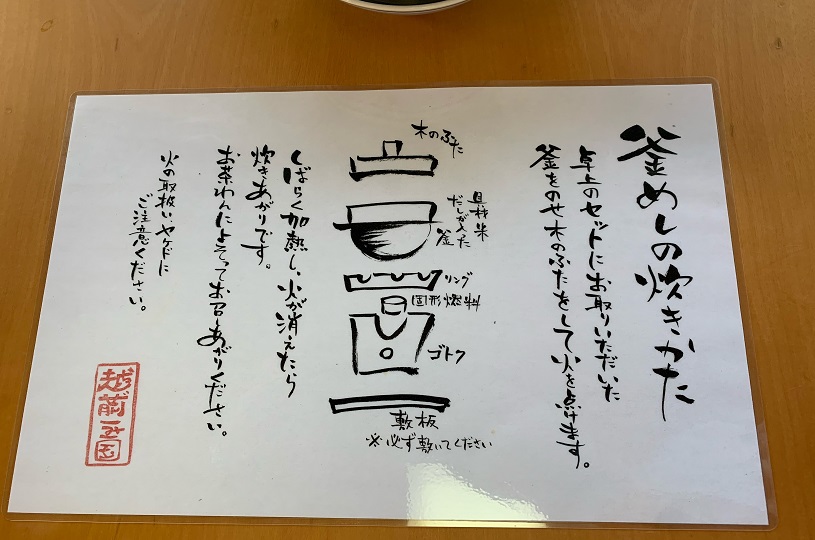 釜めしの炊きかた
卓上のセットにお取りいただいた
釜をのせ木のふたをして火を点けます。
木のふた
具材 米
だしが入った
釜
リング
固形燃料
ゴトク
敷板
※必ず敷いてください
しばらく加熱し、火が消えたら
炊きあがりです。
お茶わんによそってお召しあがりください。
火の取扱い、ヤケドに
ご注意ください。
越前